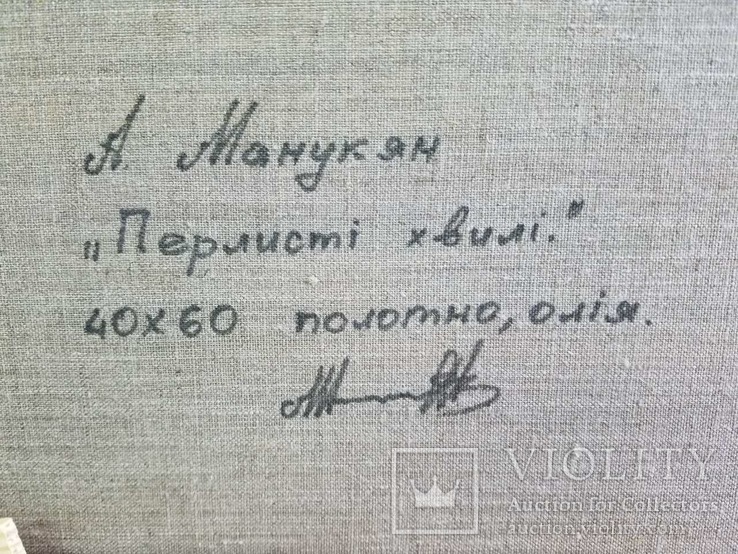 А. Манукян
„Перлисті хвилі."
40х60 полотно, олія.
VIOLITY
Auction for Collectors
auction.violity.com